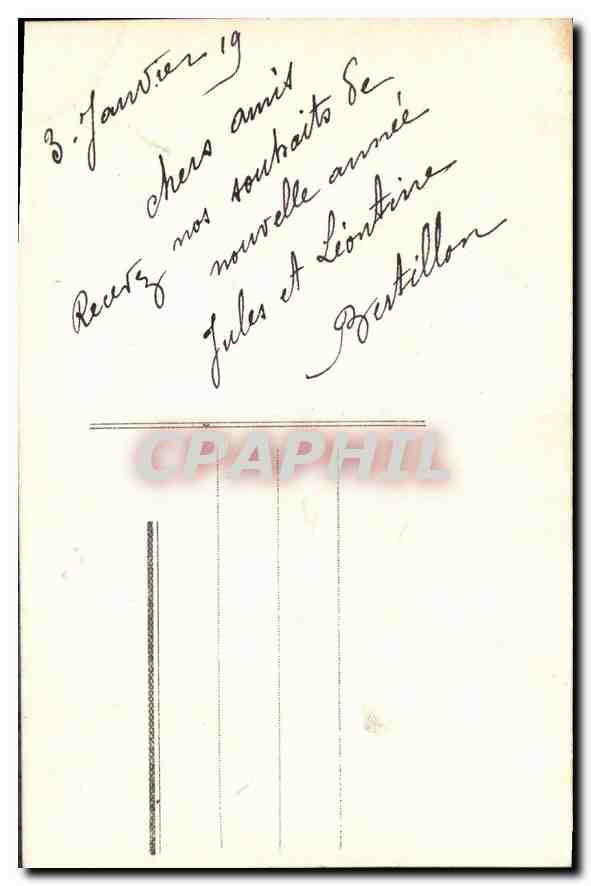 3. Janvier 19
chers amis
Recevez nos souhaits de
nouvelle année
Jules et Léontine
Bertillon
CPAPHIL